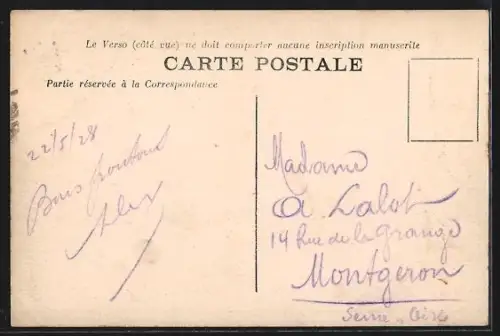 Le Verso (côté vue) ne doit comporter aucune inscription manuscrite
CARTE POSTALE
Partie réservée à la Correspondance
22/5/28
Bons
Alex
Madame
A. Lalot
14 Rue de la Grange
Montgeron
Seine-Oise